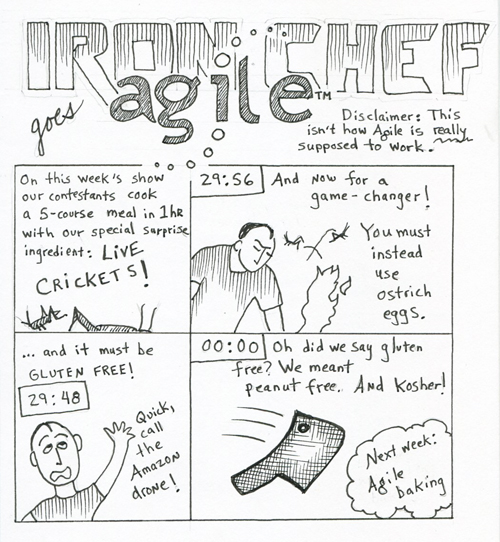 IRON CHEF
goes
agile™
Disclaimer: This
isn't how Agile is really
supposed to work.
On this week's show
our contestants cook
a 5-course meal in 1hr
with our special surprise
ingredient: LIVE
CRICKETS!
29:56
And now for a
game-changer!
You must
instead
use
ostrich
eggs.
... and it must be
GLUTEN FREE!
29:48
Quick,
call
the
Amazon
drone!
00:00
Oh did we say gluten
free? We meant
peanut free. And Kosher!
Next week:
Agile
baking